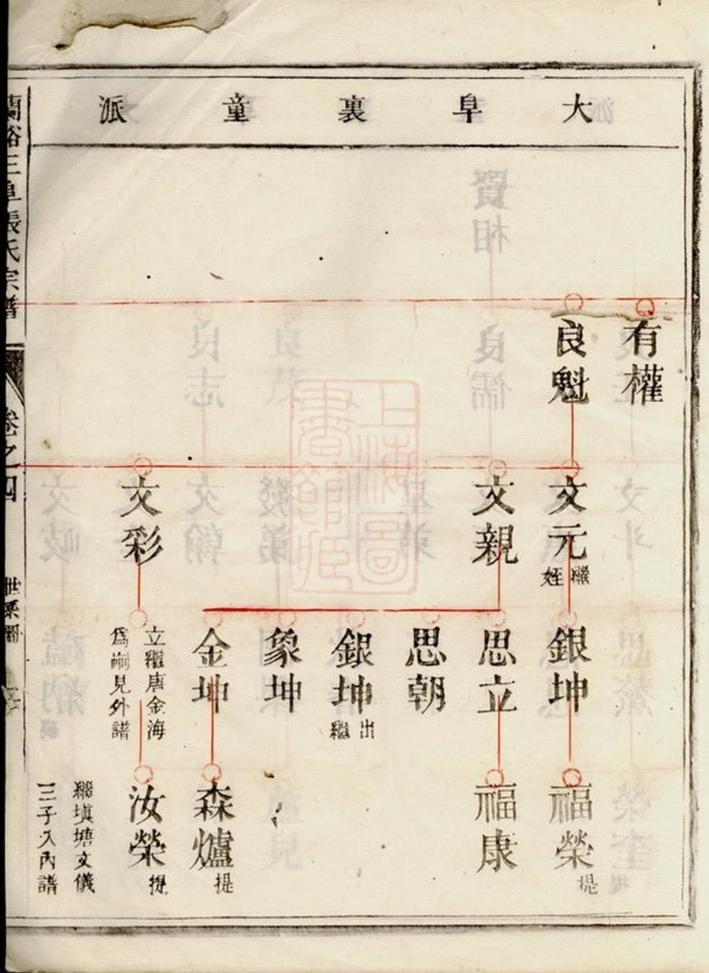 大阜裏童派
有權
良魁
文元
繼
姪
文親
文彩
銀坤
思立
思朝
銀坤
出
繼
象坤
金坤
立繼唐金海
爲嗣見外譜
福榮
提
福康
森爐
提
汝榮
提
繼塡塘文儀
三子入內譜
三阜張氏宗譜
卷之四
世系圖
上海圖書館藏